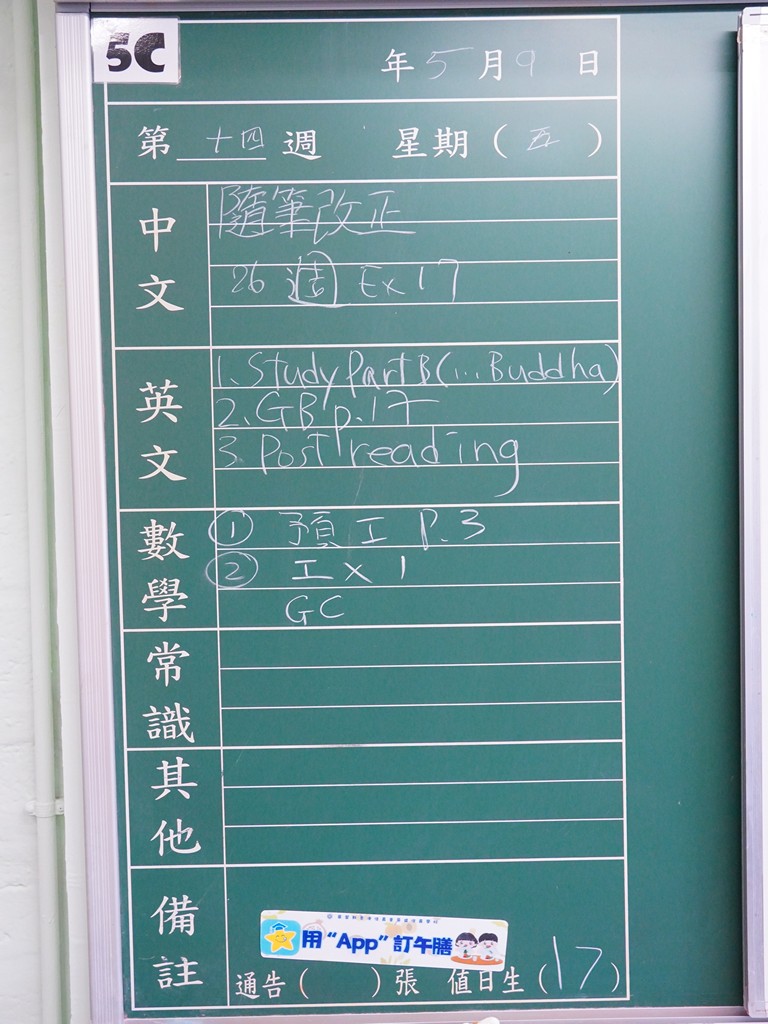 5C
年 5 月 9 日
第 十四 週 星期 ( 五 )
中文
隨筆改正
26 週 Ex 17
英文
1. Study Part B (... Buddha)
2. GB p.17
3. Post reading
數學
① 預工 P.3
② 工 x 1
GC
常識
其他
備註
用 “App” 訂午膳
通告 ( ) 張 值日生 ( 17 )